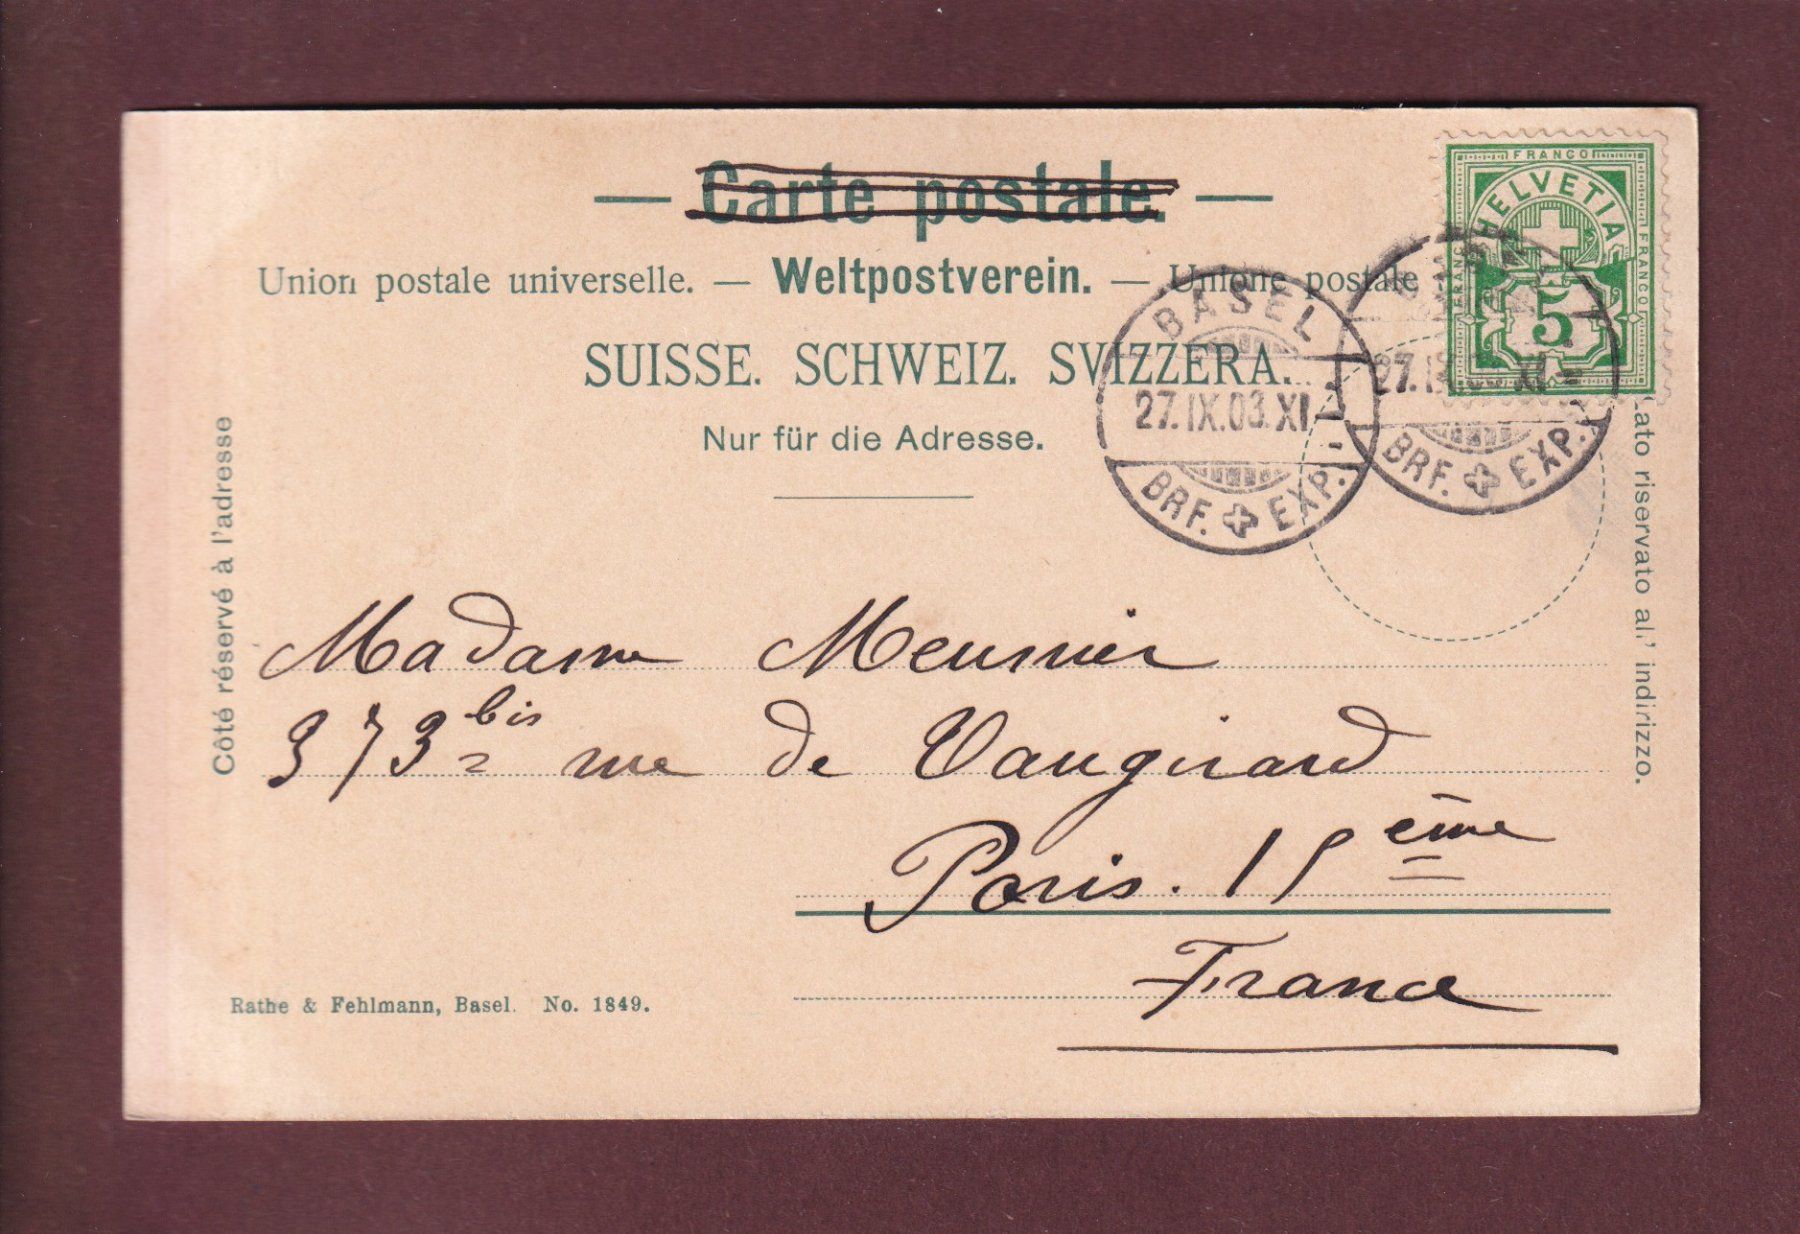 — Carte postale. —
Union postale universelle. — Weltpostverein. — Unione postale
SUISSE. SCHWEIZ. SVIZZERA.
Nur für die Adresse.
FRANCO
HELVETIA
FRANCO
FRANCO
5
BASEL
27.IX.03.XI
BRF. EXP.
27.IX.03 XI
BRF. EXP.
Côté réservé à l'adresse
Lato riservato all' indirizzo.
Madame Meusnier
373 bis rue de Vaugirard
Paris. 15 ème
France
Rathe & Fehlmann, Basel. No. 1849.